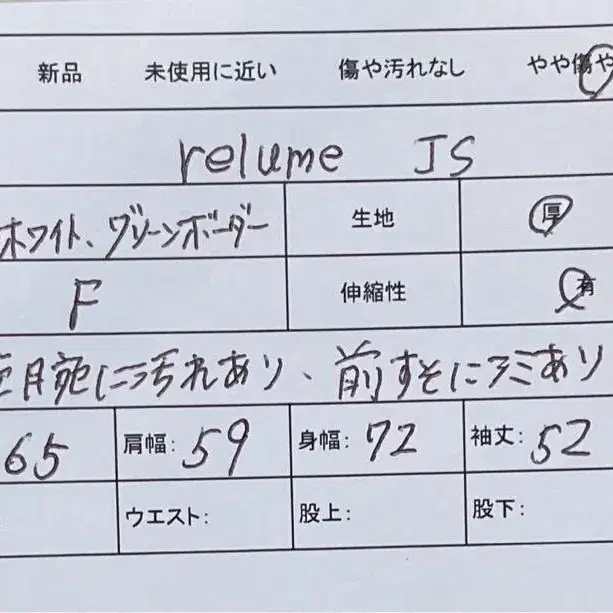 新品 未使用に近い 傷や汚れなし やや傷や
relume JS
ホワイト、グリーンボーダー 生地 厚
F 伸縮性 有
に汚れあり、前すそにシミあり
65 肩幅: 59 身幅: 72 袖丈: 52
ウエスト: 股上: 股下: